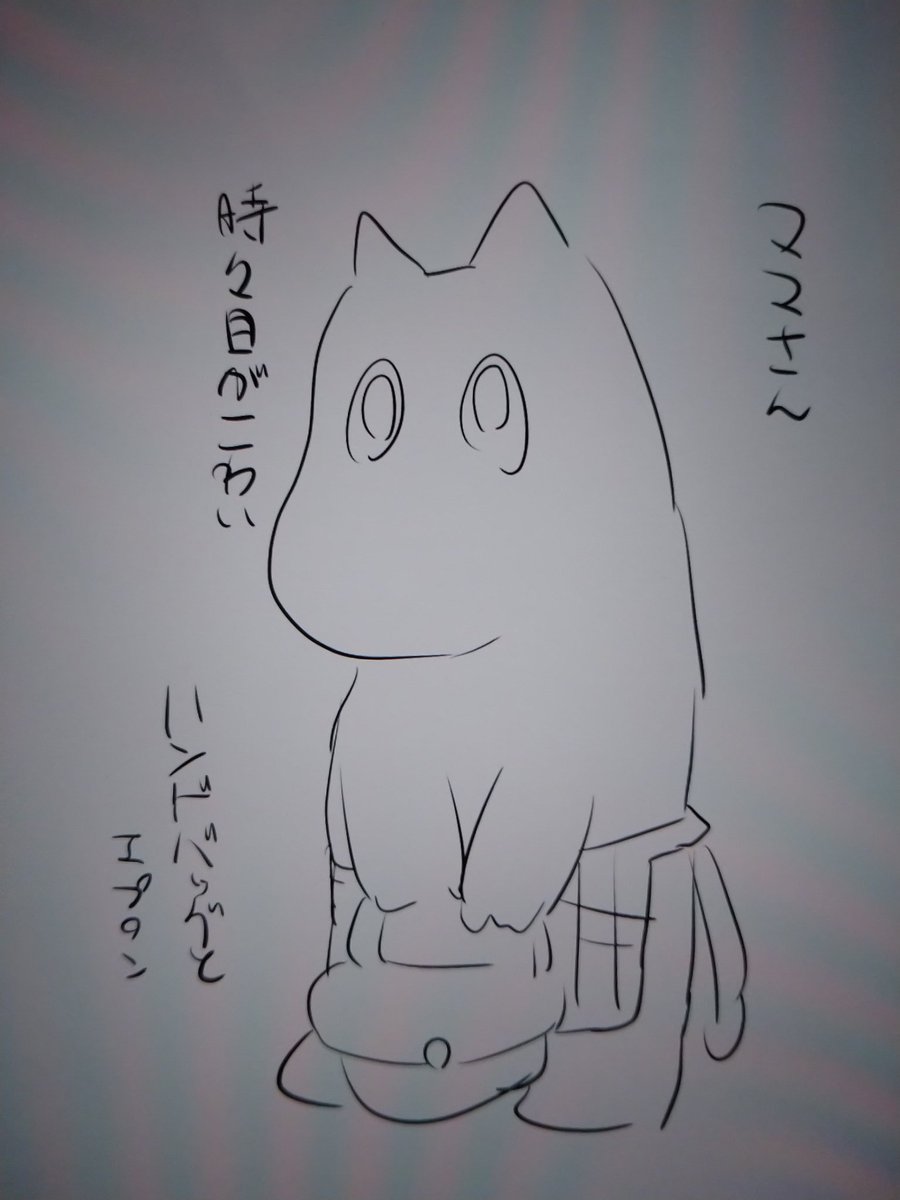 ママさん
時々目がこわい
ハンドバッグと
エプロン